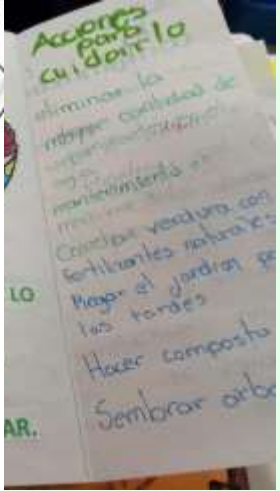 Acciones
para
cuidarlo
eliminar la
mayor cantidad de
mantenimiento
Cosechar verdura con
fertilizantes naturales
Regar el jardín po
las tardes
Hacer composta
Sembrar arbo
LO
AR.